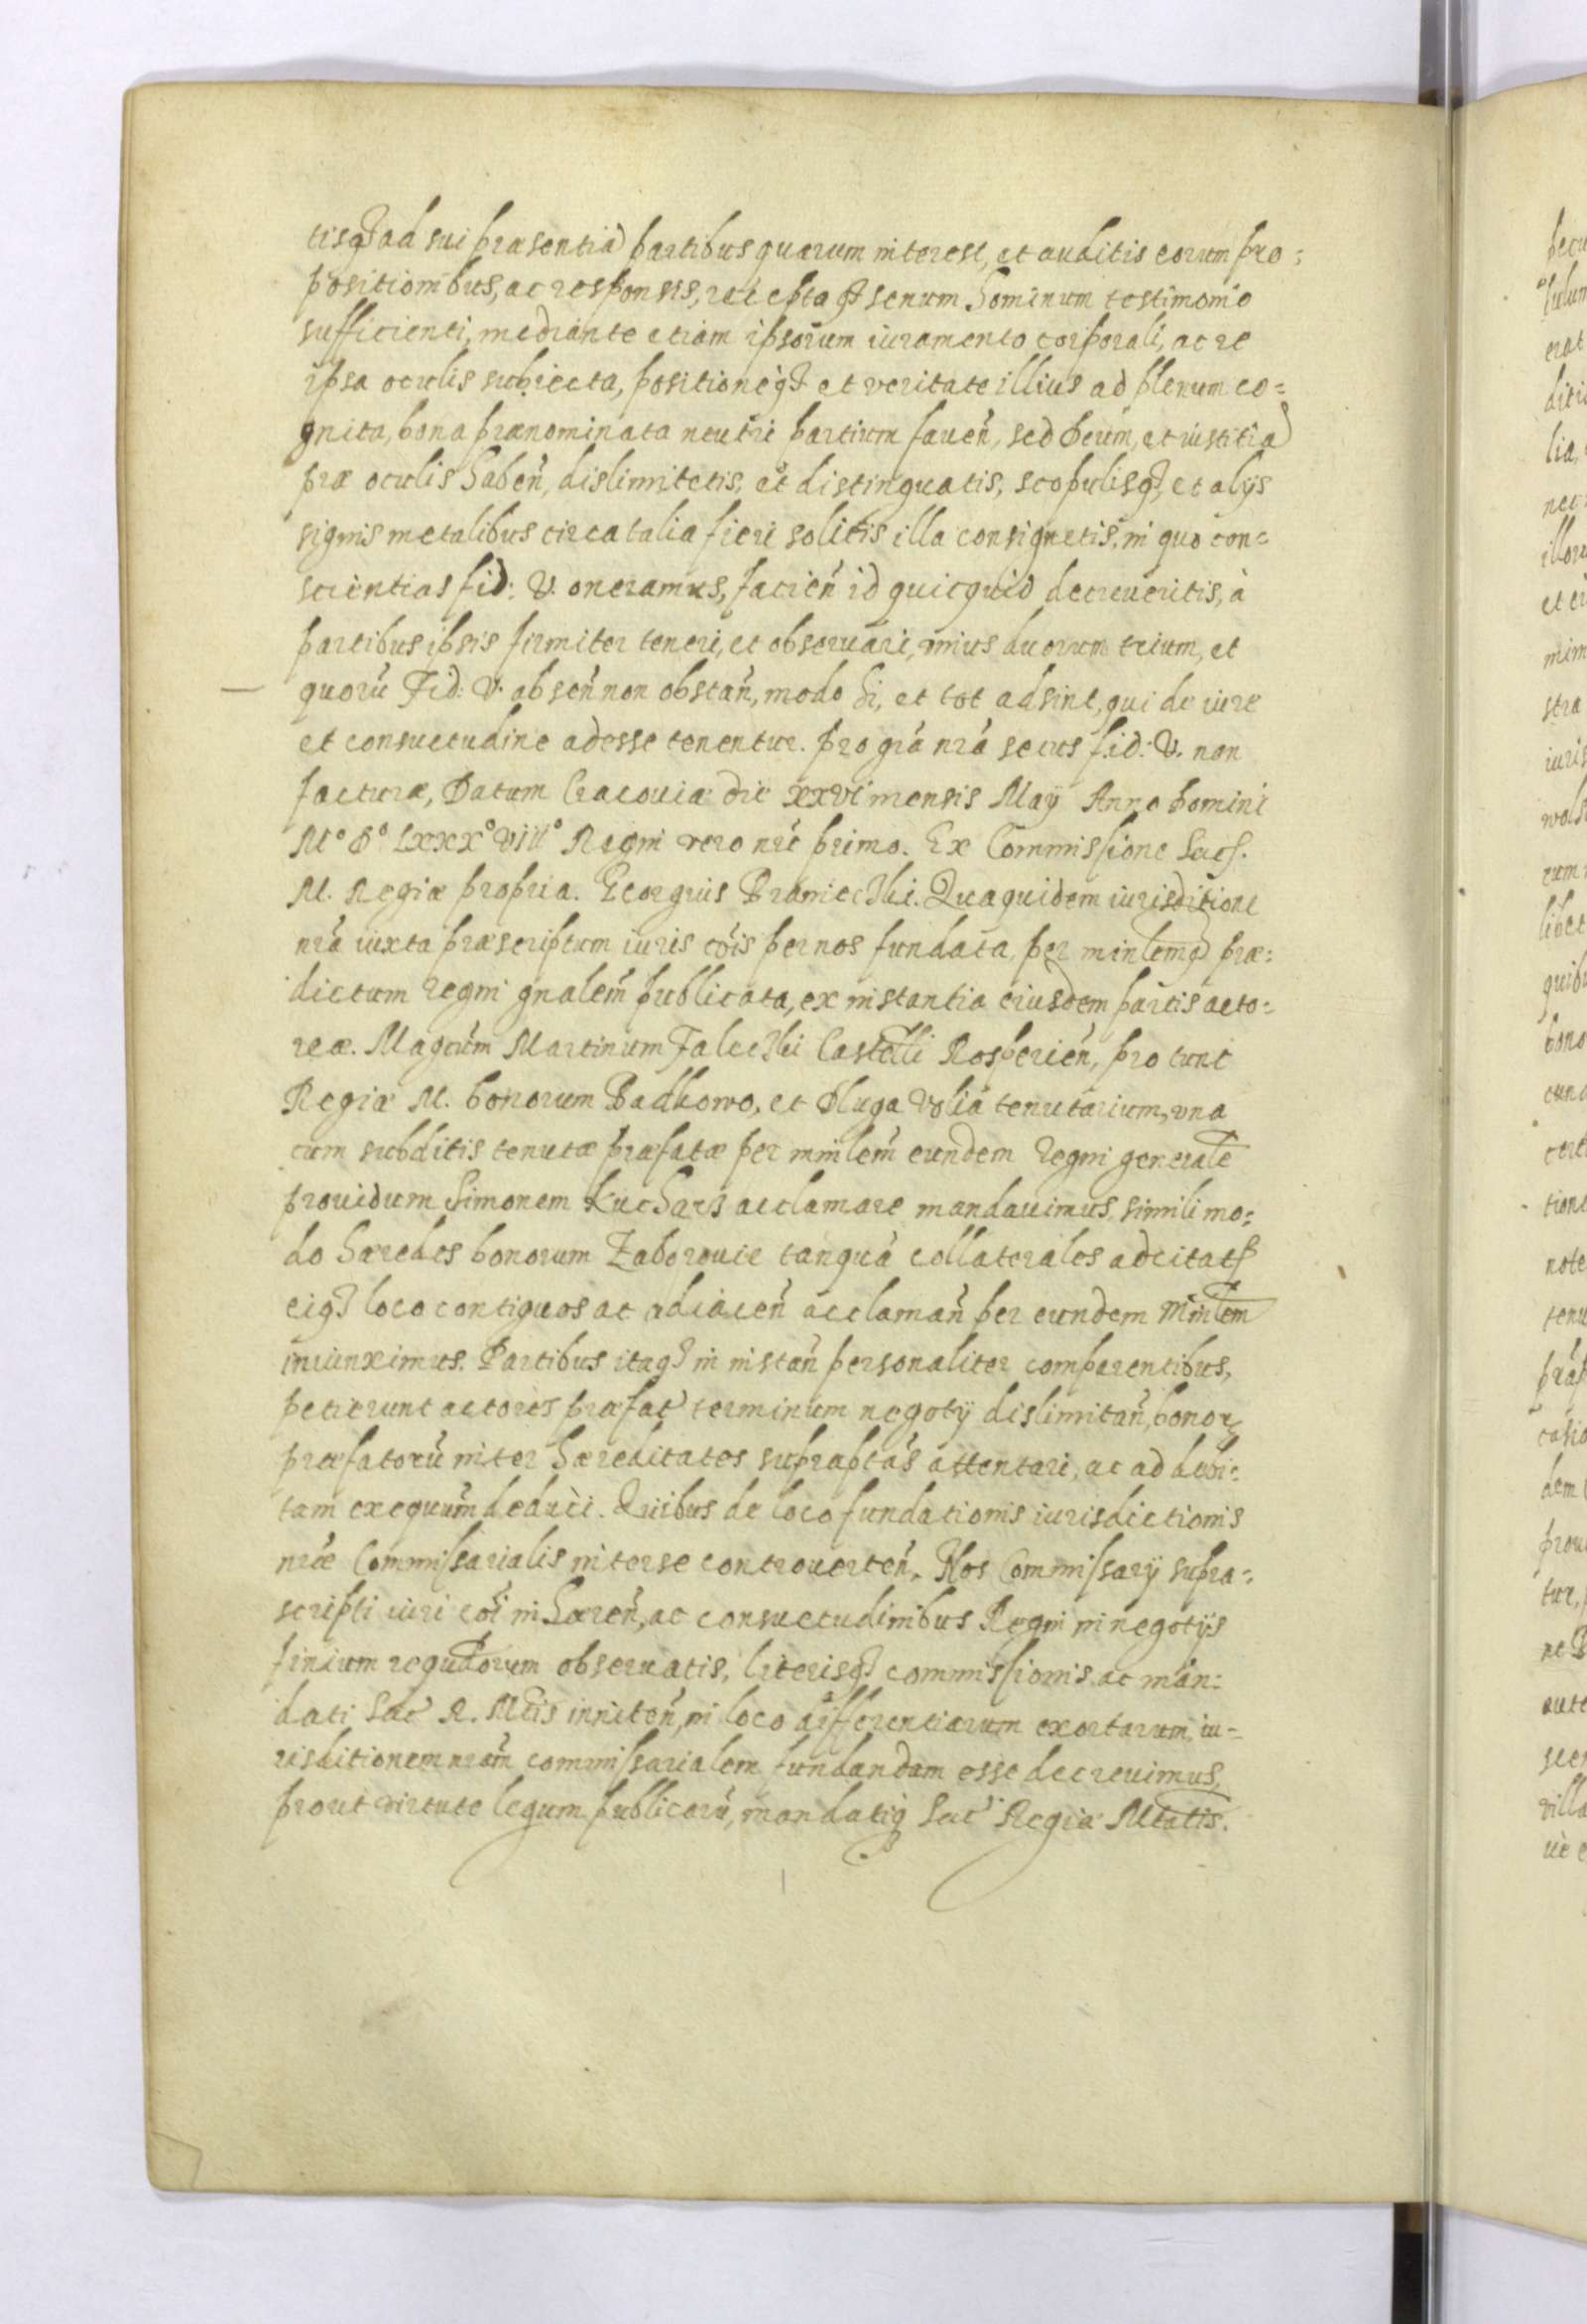 tisq₃ ad sui præsentiā partibus quarum interest, et auditis eorum pro:
positionibus, ac responsis, receptaq₃ senum hominum testimonio
sufficienti, mediante etiam ipsorum iuramento corporali, ac re
ipsa oculis subiecta, positioneq₃ et veritate illius ad plenum co=
gnita, bona prænominata neutri partium faveñ, sed Deum, et iustitiā
præ oculis habeñ, dislimitetis, et distinguatis, scopulisq₃, et alijs
signis metalibus circa talia fieri solitis illa consignetis, in quo con=
scientias fid: V. oneramus, facieñ id quicquid decreveritis, à
partibus ipsis firmiter teneri, et observari, unius duorum trium, et
quorū Fid: V. abseñ non obstañ, modo hi, et tot adsint, qui de iure
et consuetudine adesse tenentur. pro grā nrā secus fid: V. non
facturæ, Datum Cracoviæ die xxvi mensis Maij Anno Domini
M° D° Lxxx° viii° Regni vero nrī primo. Ex Commissione Sacr.
M. Regiæ propria. Georgius Branicchi. Qua quidem iurisditione
nrā iuxta præscriptum iuris cōis per nos fundata, per minlemq₃ præ:
dictum regni gnalem̄ publicata, ex instantia eiusdem partis acto:
reæ. Magcum̄ Martinum Falecchi Castelli Rosperień, pro tunc
Regiæ M. bonorum Badkowo, et Dluga Volia tenutarium, una
cum subditis tenutæ præfatæ per minlem̄ eundem Regni generalē
providum Simonem Kucharz acclamare mandavimus, simili mo:
do hæredes bonorum Zaborovie tanquā collaterales adcitat
eiq₃ loco contiguos ac adiaceñ acclamañ per eundem Minlem
iniunximus. Partibus itaq₃ in instañ personaliter comparentibus,
petierunt actores præfat terminum negotij dislimitañ, bonor
præfatorū inter hæreditates supraptas̄ attentari, ac ad debi:
tam exequum̄ deduci. Quibus de loco fundationis iurisdictionis
nræ Commissarialis inter se controverteñ. Nos Commissarij supra:
scripti iuri cōi inhæreñ, ac consuetudinibus Regni in negotijs
finium regudorum observatis, literisq₃ commissionis ac man:
dati Sac R. Mtis inniteñ, in loco differentiarum exortarum, iu=
risditionem nram̄ commissarialem fundandam esse decrevimus,
prout virtute legum publicarū, mandatiq₃ Sac Regiæ Mtatis.